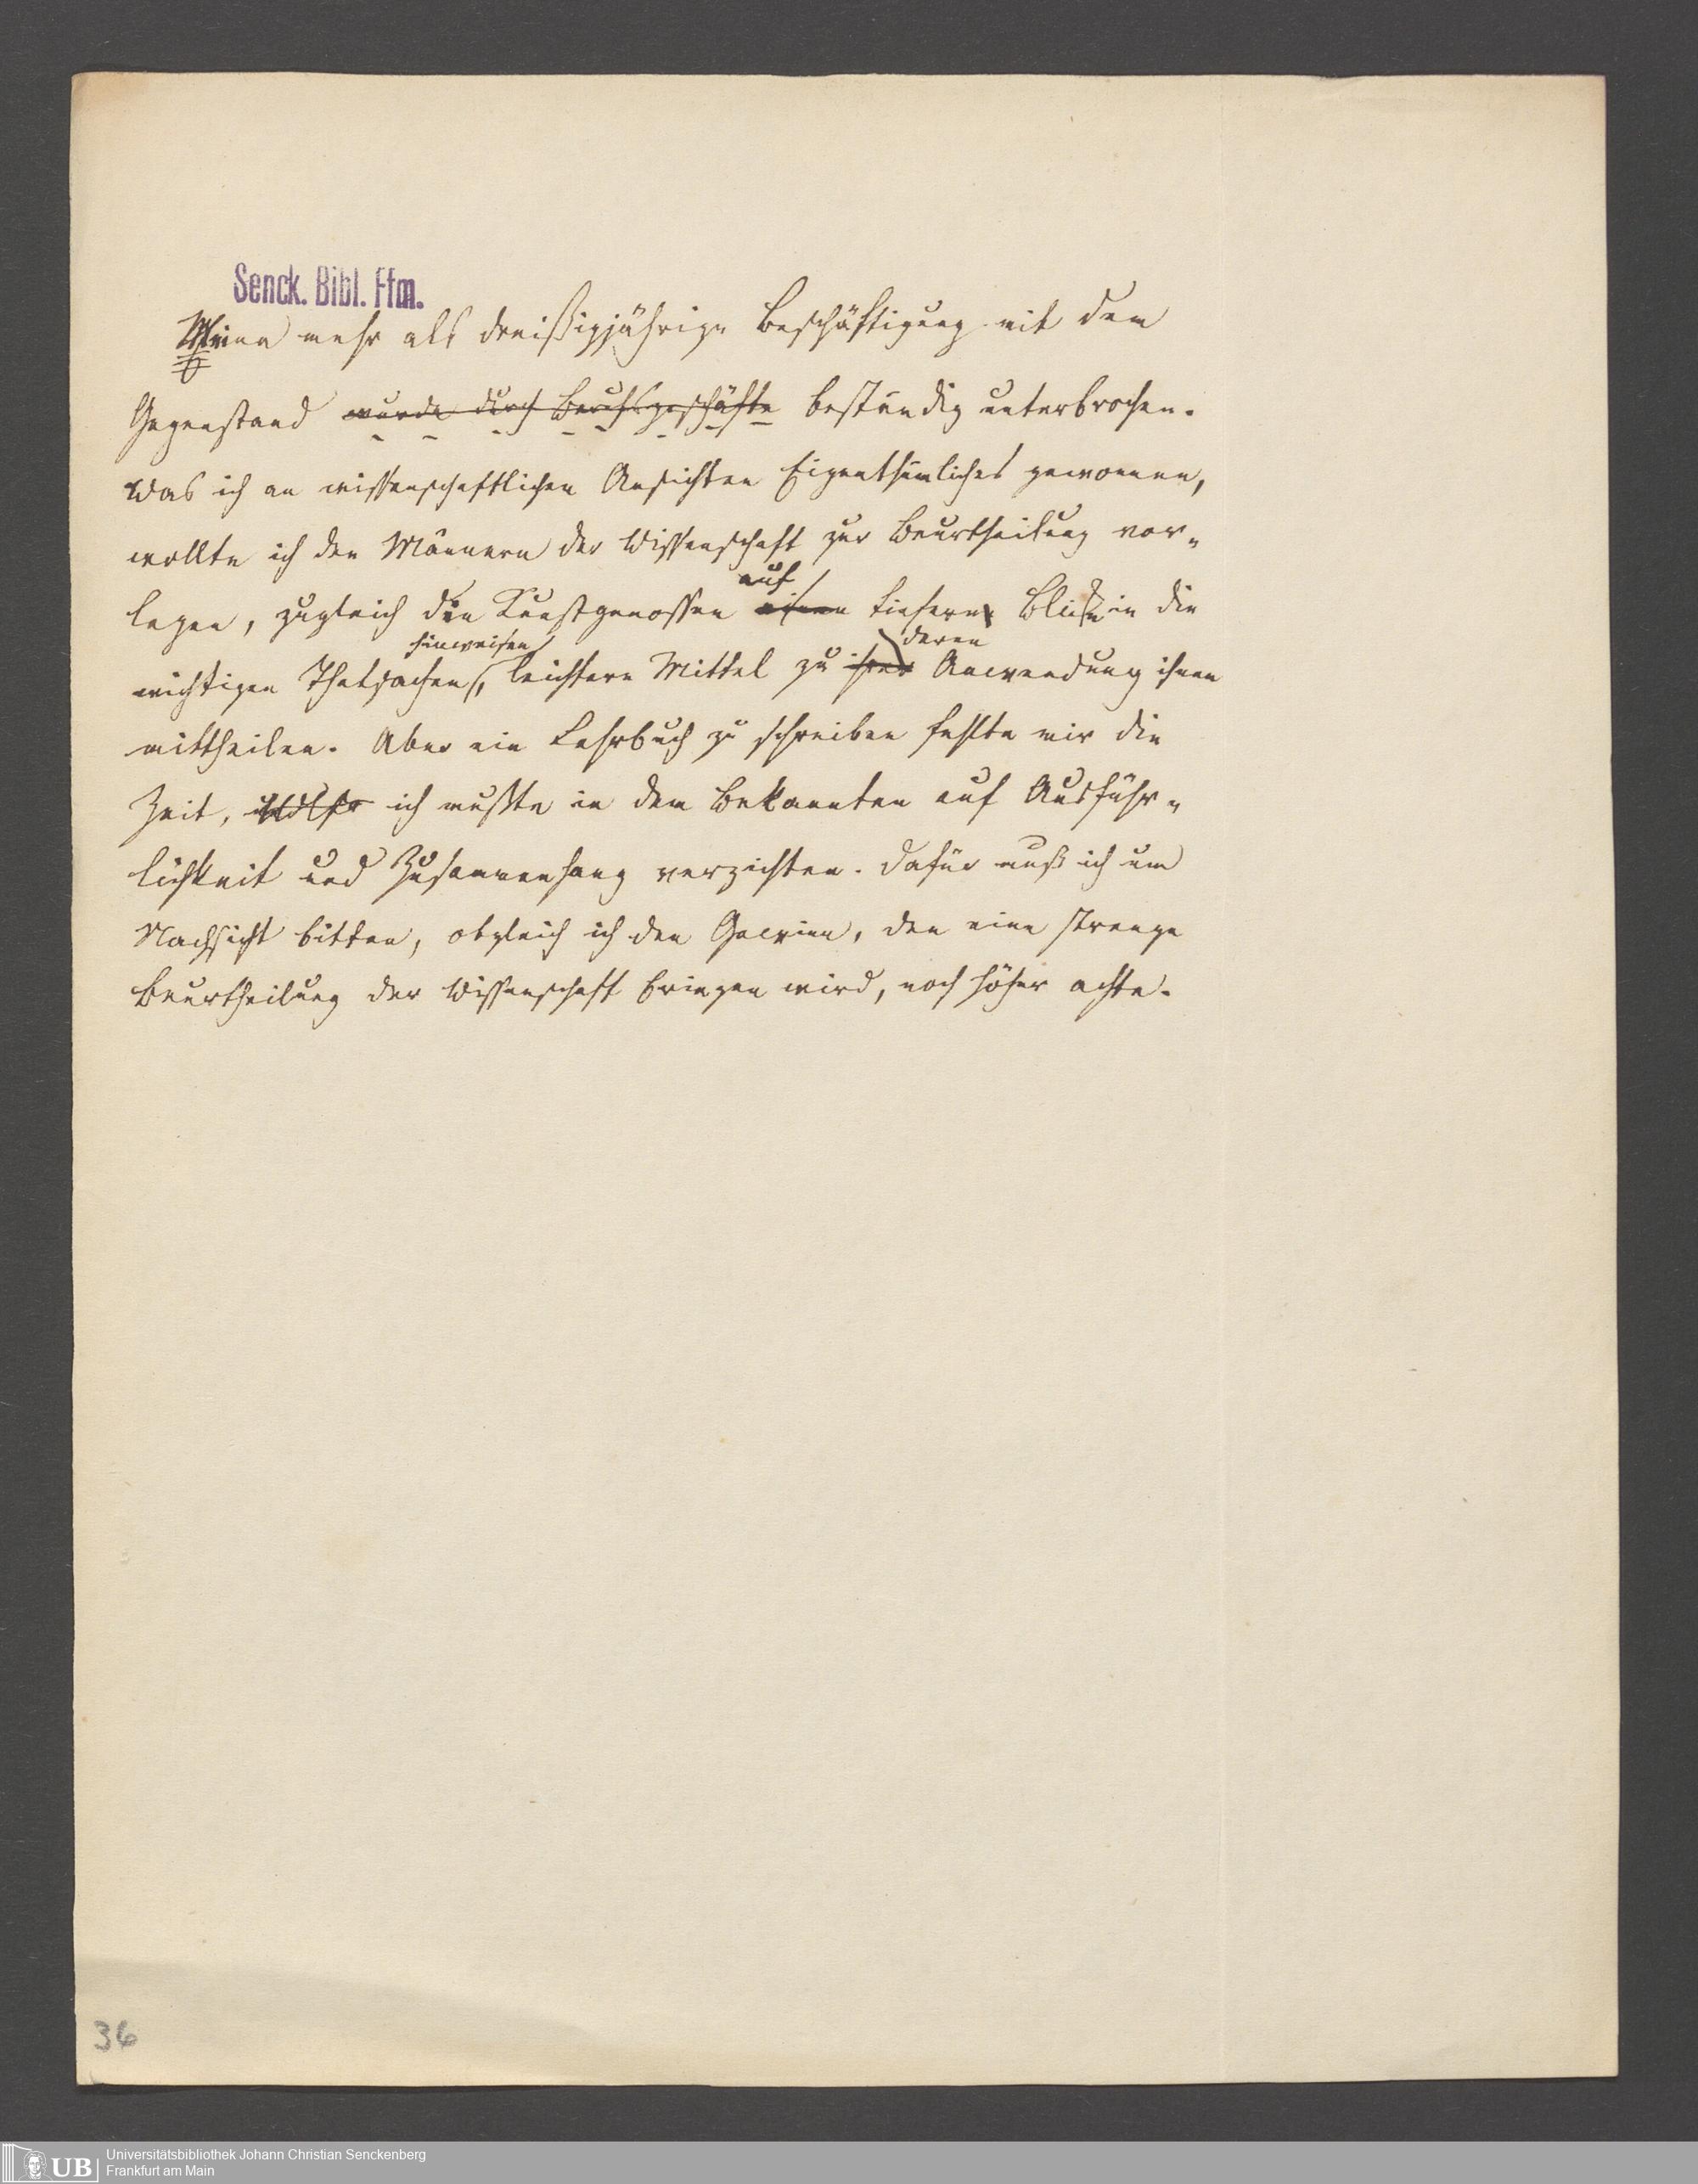 Senck. Bibl. Ffm.
Meine mehr als dreißigjährige Beschäftigung mit dem
Gegenstand wurde durch Berufsgeschäfte beständig unterbrochen.
Was ich an wissenschaftlichen Ansichten Eigenthümliches gewonnen,
wollte ich den Männern der Wissenschaft zur Beurtheilung vor-
auf
legen, zugleich den Kunstgenossen einen tiefern Blick in die
hinweisen deren
wichtigen Thatsachen, leichtere Mittel zu ihrer Anwendung ihnen
mittheilen. Aber ein Lehrbuch zu schreiben fehlte mir die
Zeit, ich mußte in dem Bekannten auf Ausführ-
lichkeit und Zusammenhang verzichten. Dafür muß ich um
Nachsicht bitten, obgleich ich den Gewinn, den eine strenge
Beurtheilung der Wissenschaft bringen wird, noch höher achte.
36
UB
Universitätsbibliothek Johann Christian Senckenberg
Frankfurt am Main